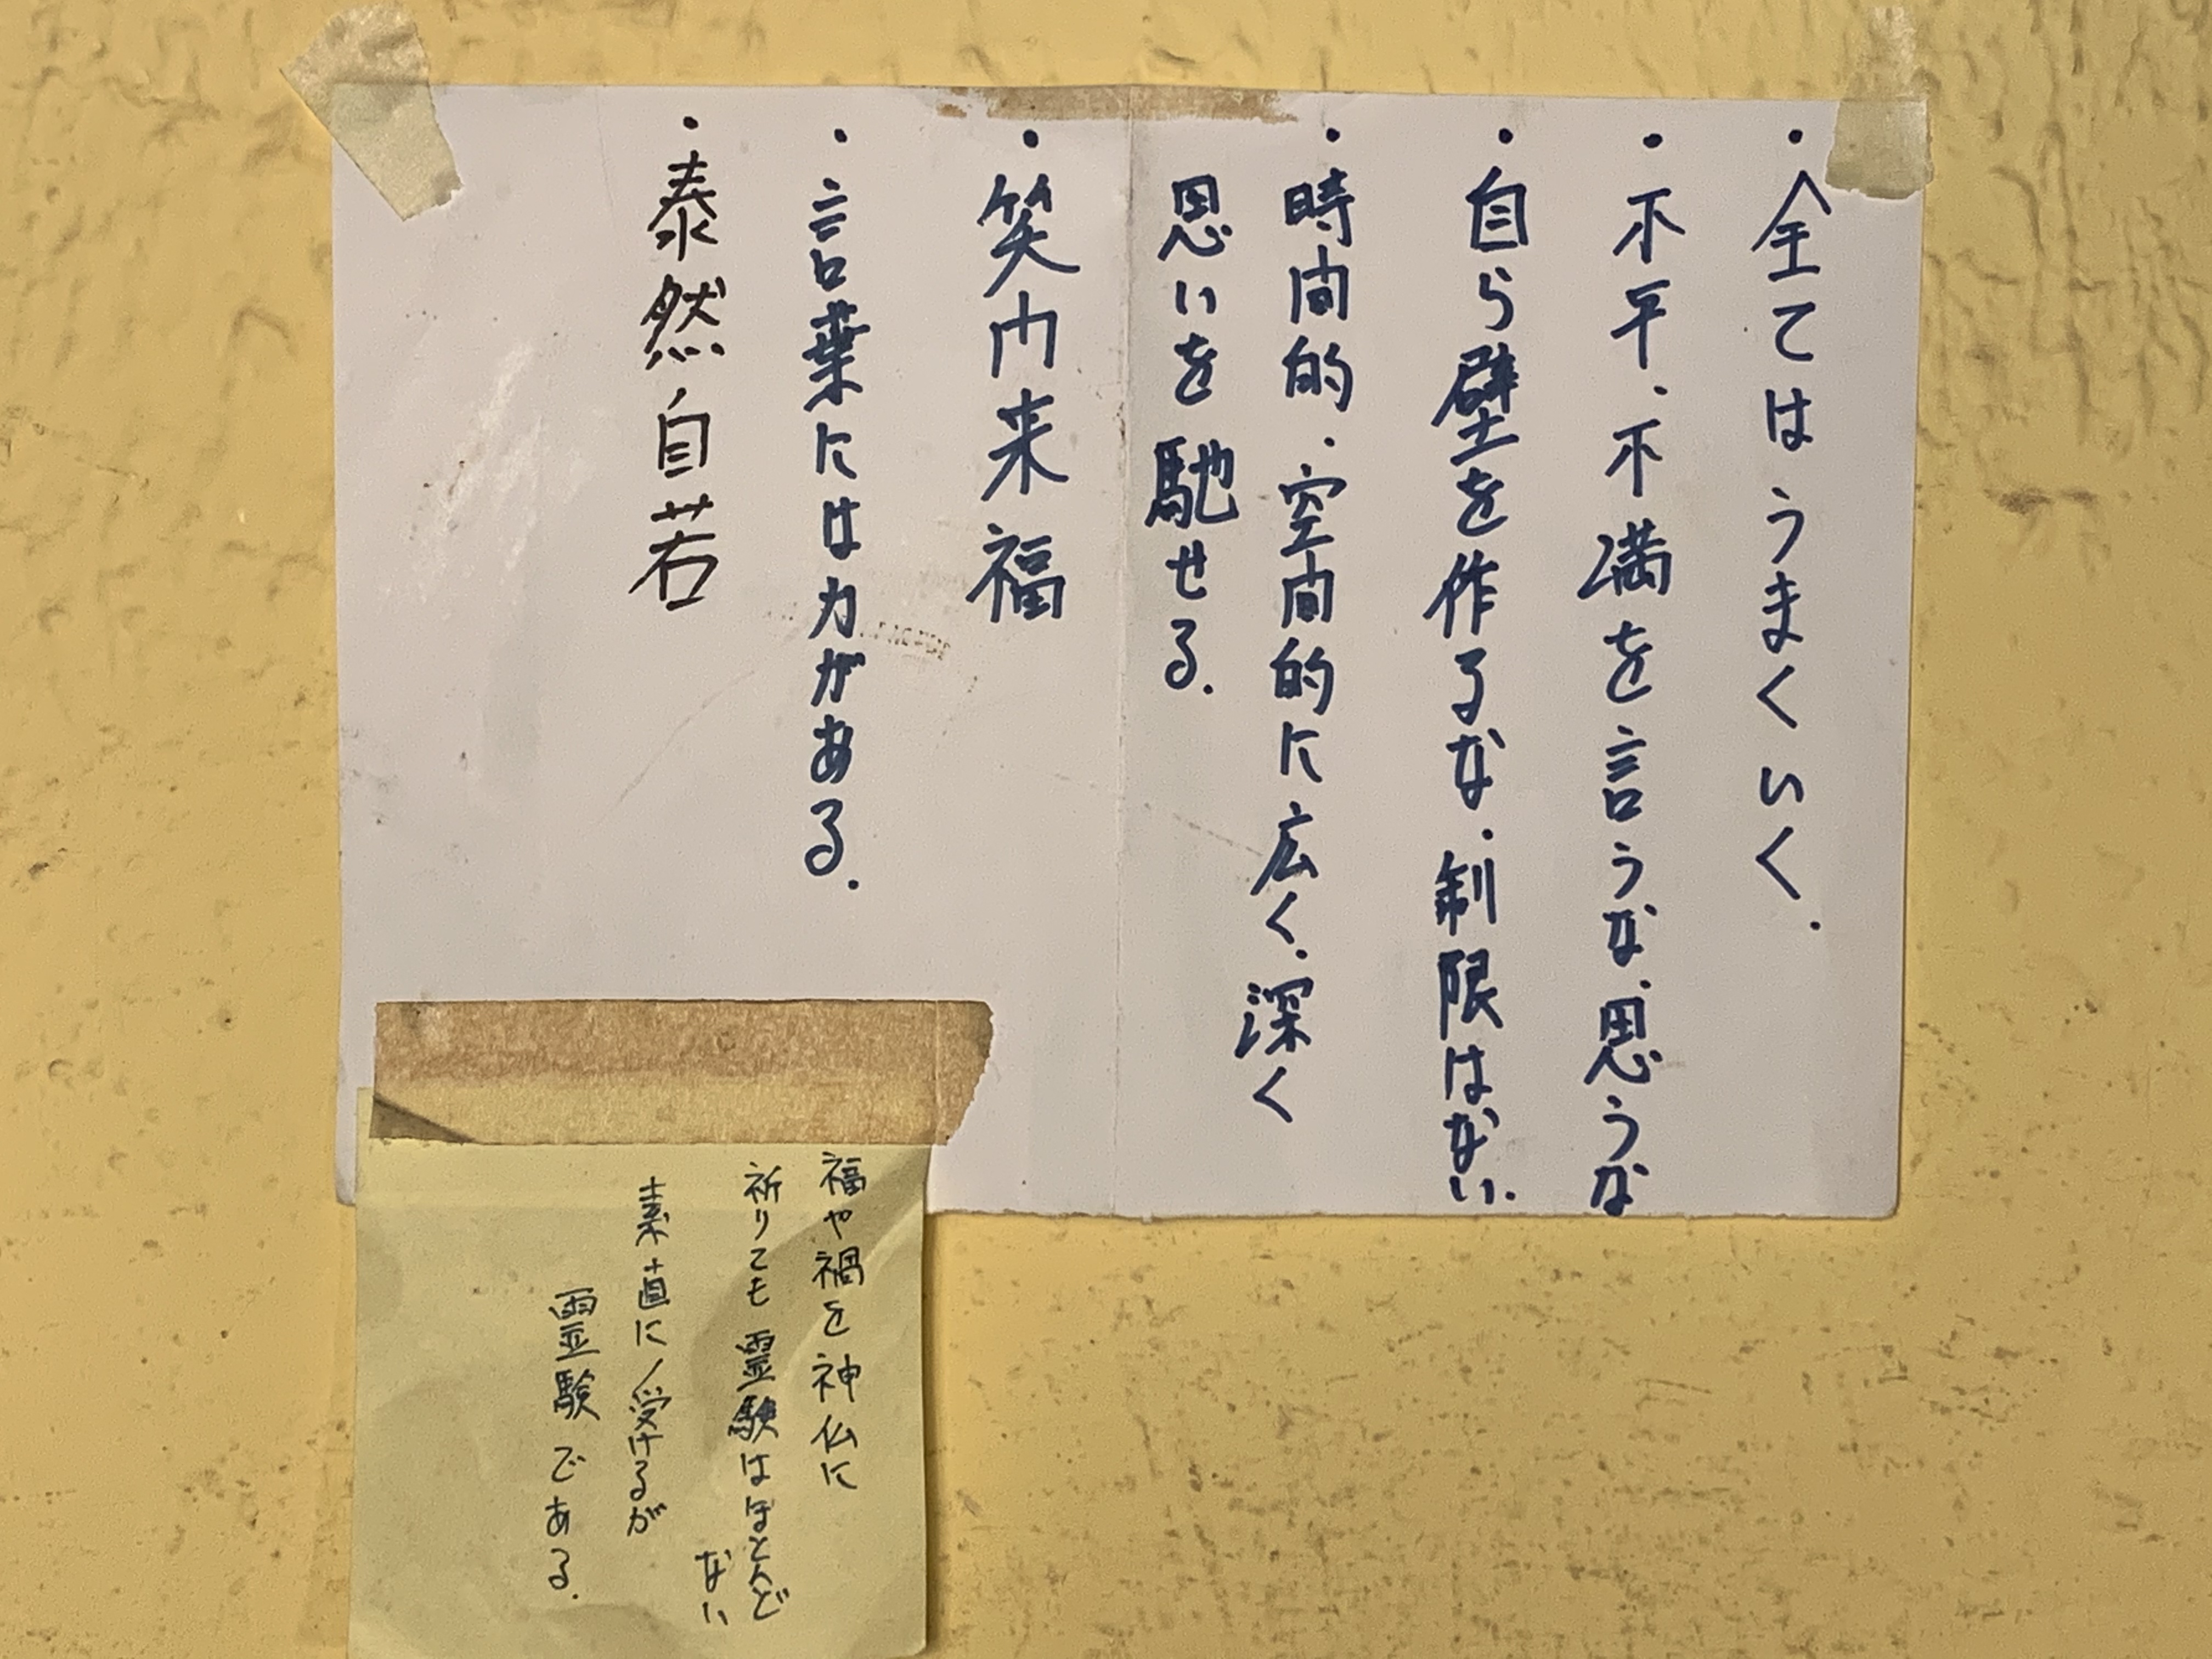 ・全てはうまくいく.
・不平、不満を言うな、思うな
・自ら壁を作るな.制限はない.
・時間的.空間的に広く.深く
思いを馳せる.
・笑門来福
・言葉には力がある.
・泰然自若
福や禍を神仏に
祈りても霊験はほとんど
ない
素直に受けるが
霊験である.